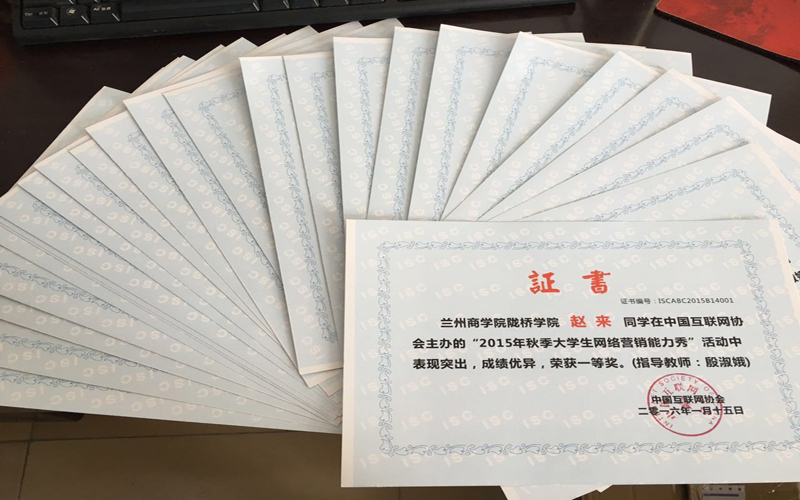 証 書
证书编号：ISCABC2015B14001
兰州商学院陇桥学院 赵 来 同学在中国互联网协
会主办的“2015年秋季大学生网络营销能力秀”活动中
表现突出，成绩优异，荣获一等奖。(指导教师：殷淑娥)
中国互联网协会
二零一六年一月十五日